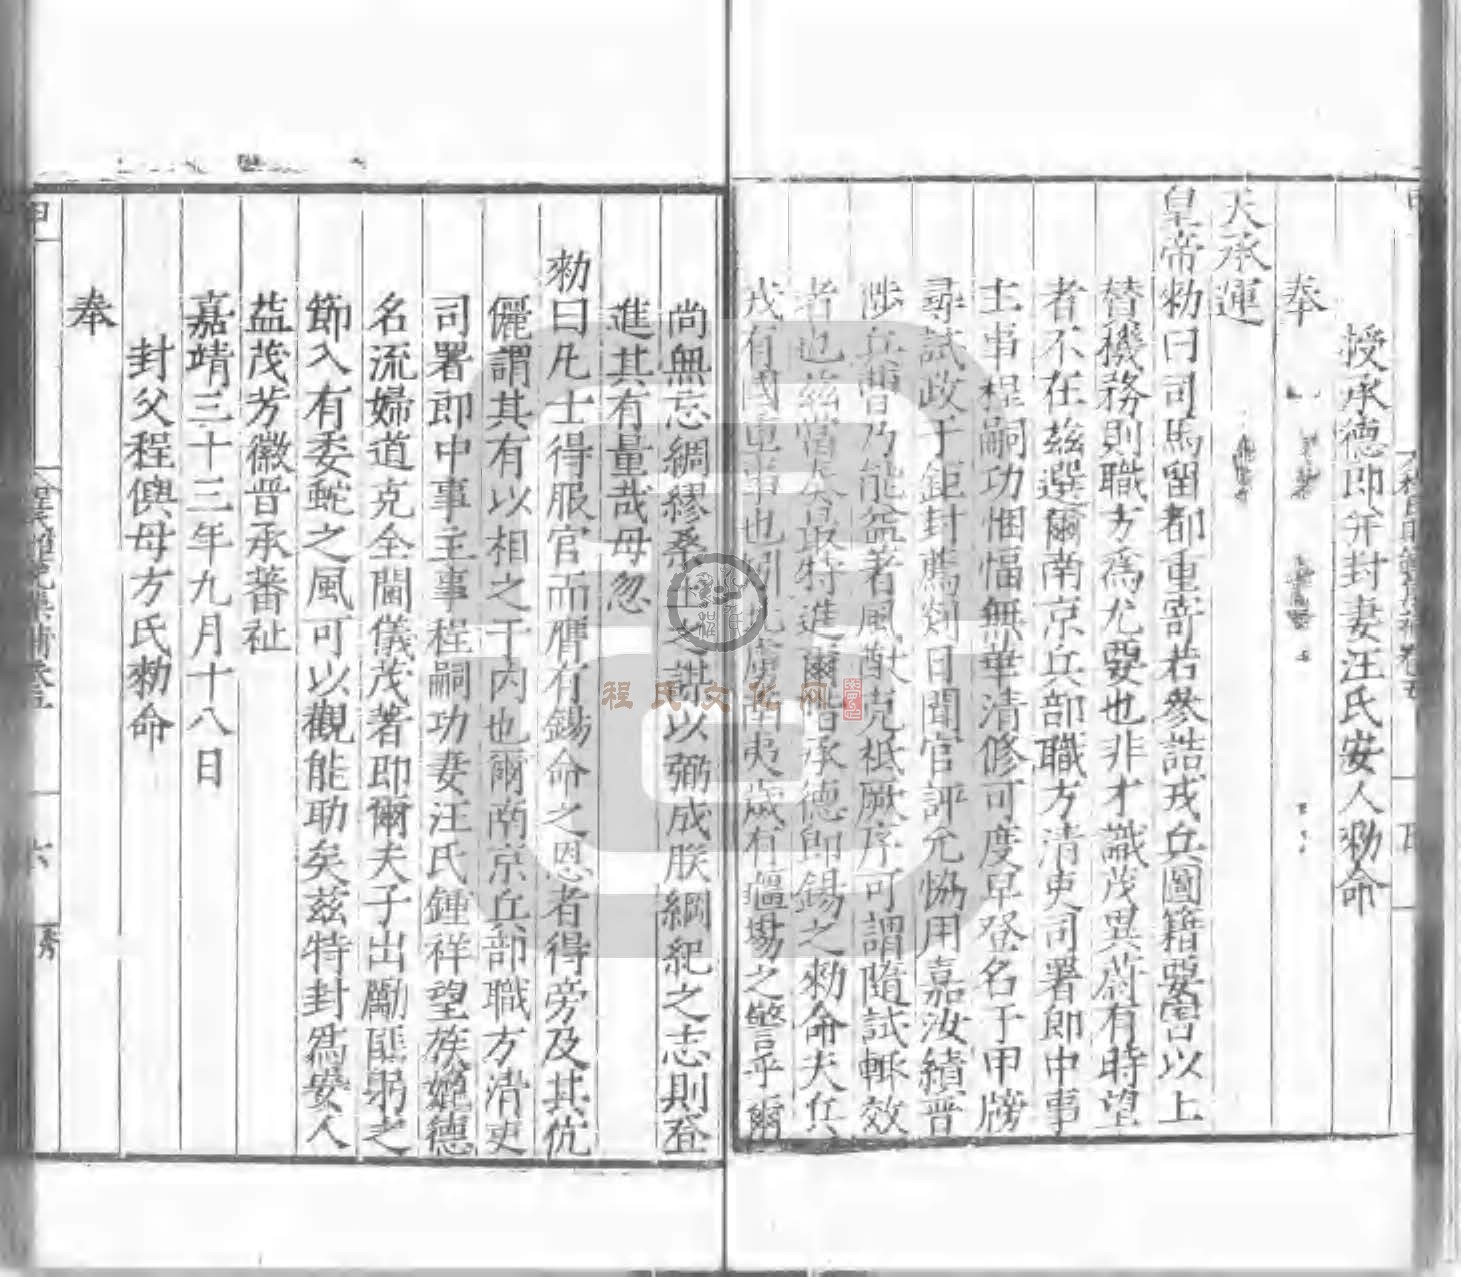 授承德郎并封妻汪氏安人勑命
奉
天承運
皇帝勑曰司馬留都重寄若參誥戎兵圖籍要害以上
替機務則職方爲尤要也非才識茂異蔚有時望
者不在兹選爾南京兵部職方清吏司署郎中事
主事程嗣功悃愊無華清修可度早登名于甲牓
尋試政于鉅封薦剡日聞官評允恊用嘉汝績晉
陟兵曹乃能益著風猷克祗厥序可謂隨試輒效
者也兹當奏最特進爾階承德郎錫之勑命夫兵
戎有國重事也矧夷歲有疆埸之警乎爾
尚無忘綢繆桑土之謀以弼成朕綱紀之志則登
進其有量哉毋忽
勑曰凡士得服官而膺有錫命之恩者得旁及其伉
儷謂其有以相之于内也爾南京兵部職方清吏
司署郎中事主事程嗣功妻汪氏鍾祥望族媲德
名流婦道克全閫儀茂著即爾夫子出勵匪躬之
節入有委蛇之風可以觀能助矣兹特封爲安人
益茂芳徽晉承蕃祉
嘉靖三十三年九月十八日
封父程㒜母方氏勑命
奉
六
程氏文化网